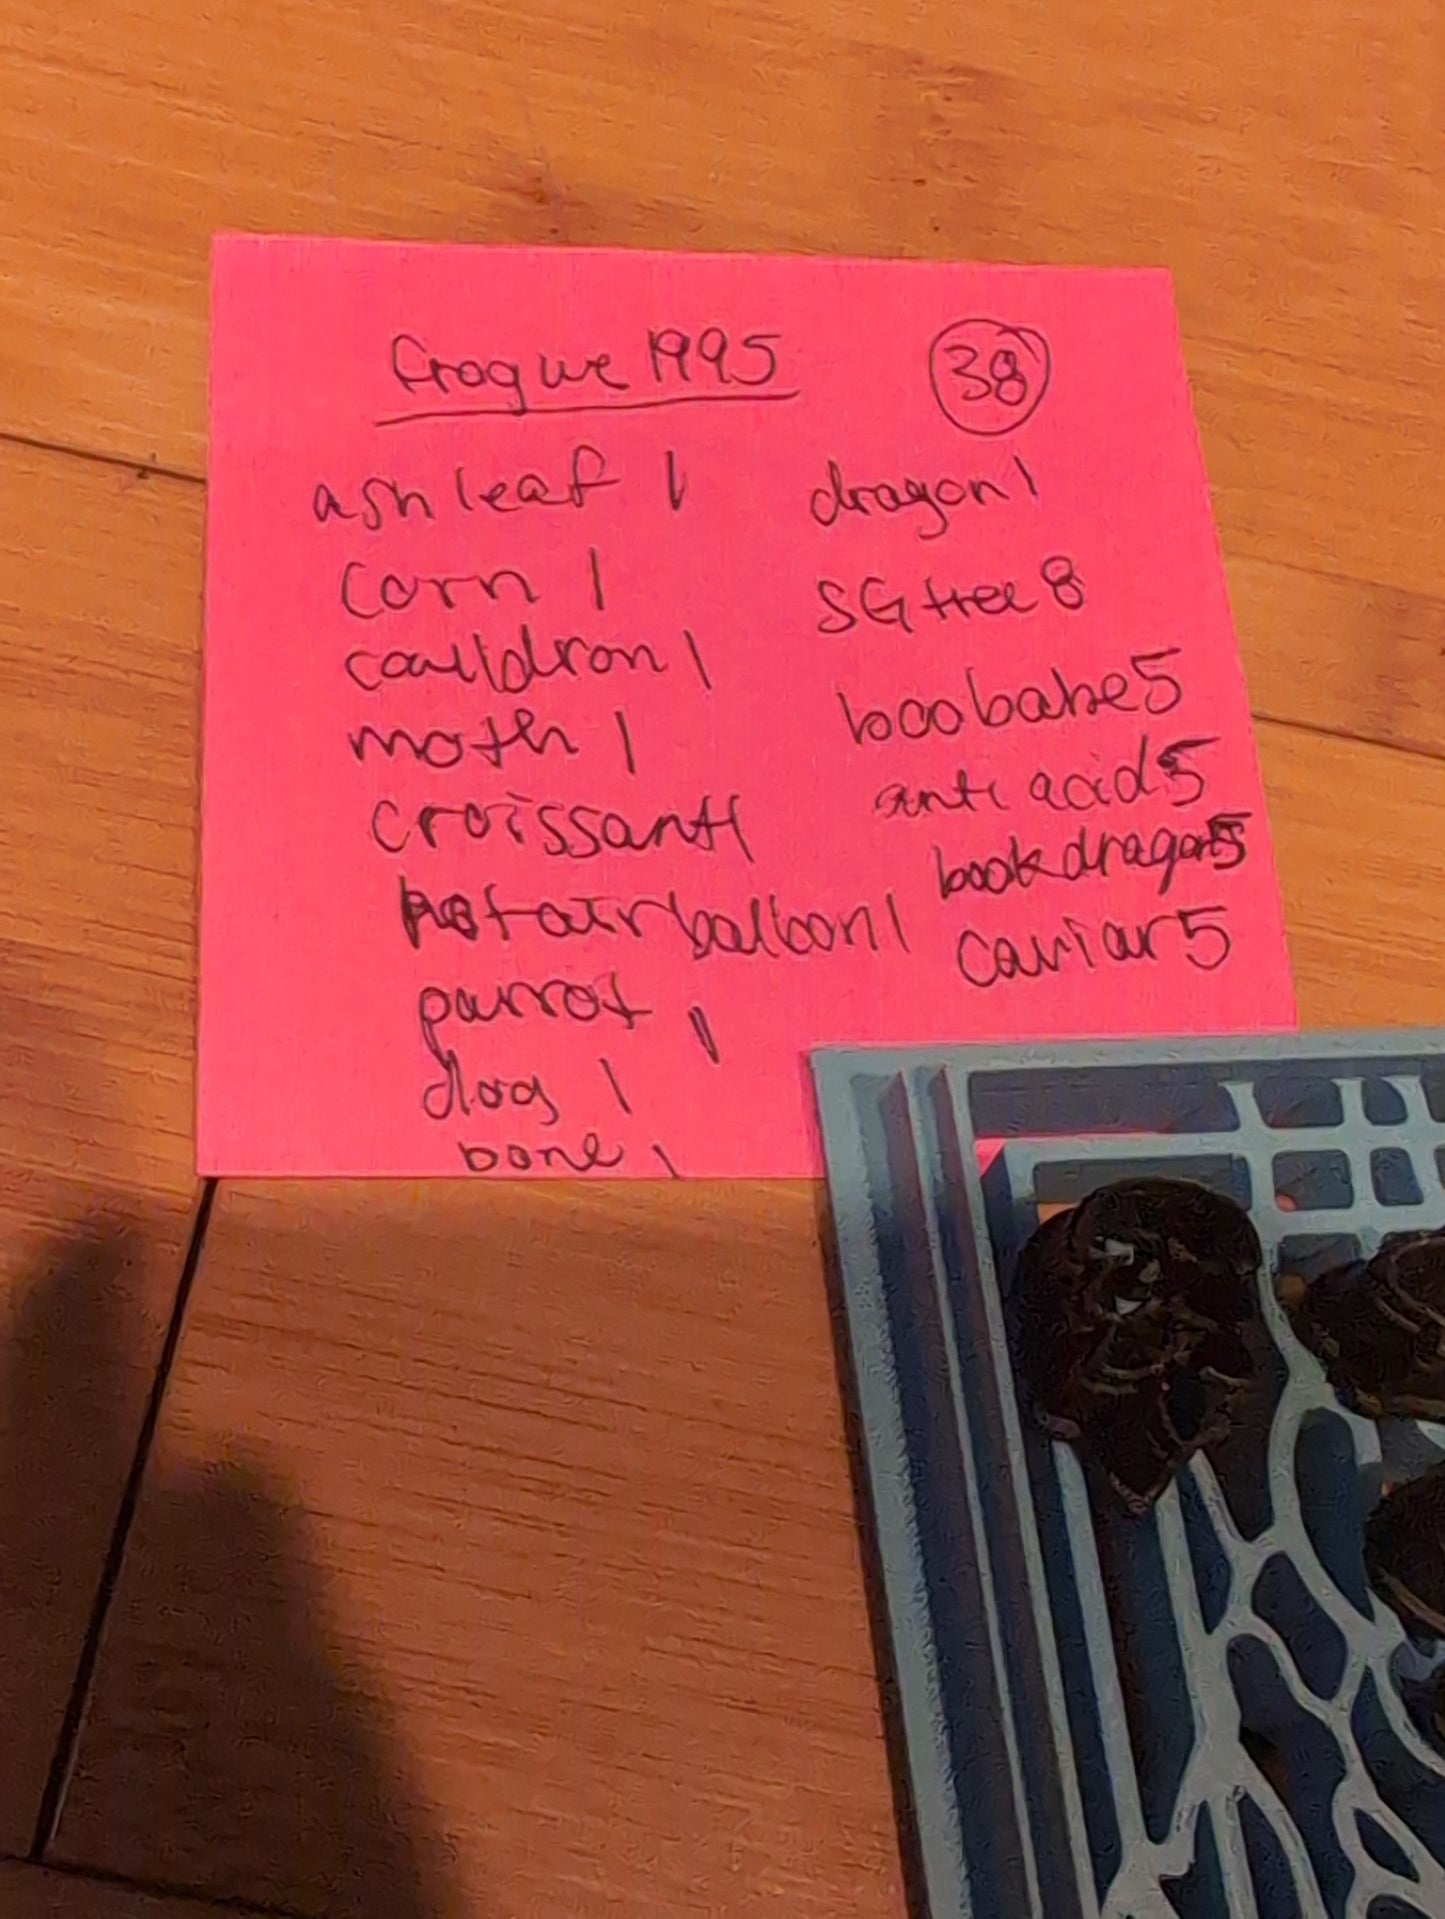 frogwe 1995
38
ash leaf 1
corn 1
cauldron 1
moth 1
croissant 1
hot air balloon 1
parrot 1
dog 1
bone 1
dragon 1
SG tree 8
boo babe 5
anti acid 5
book dragon 5
caviar 5